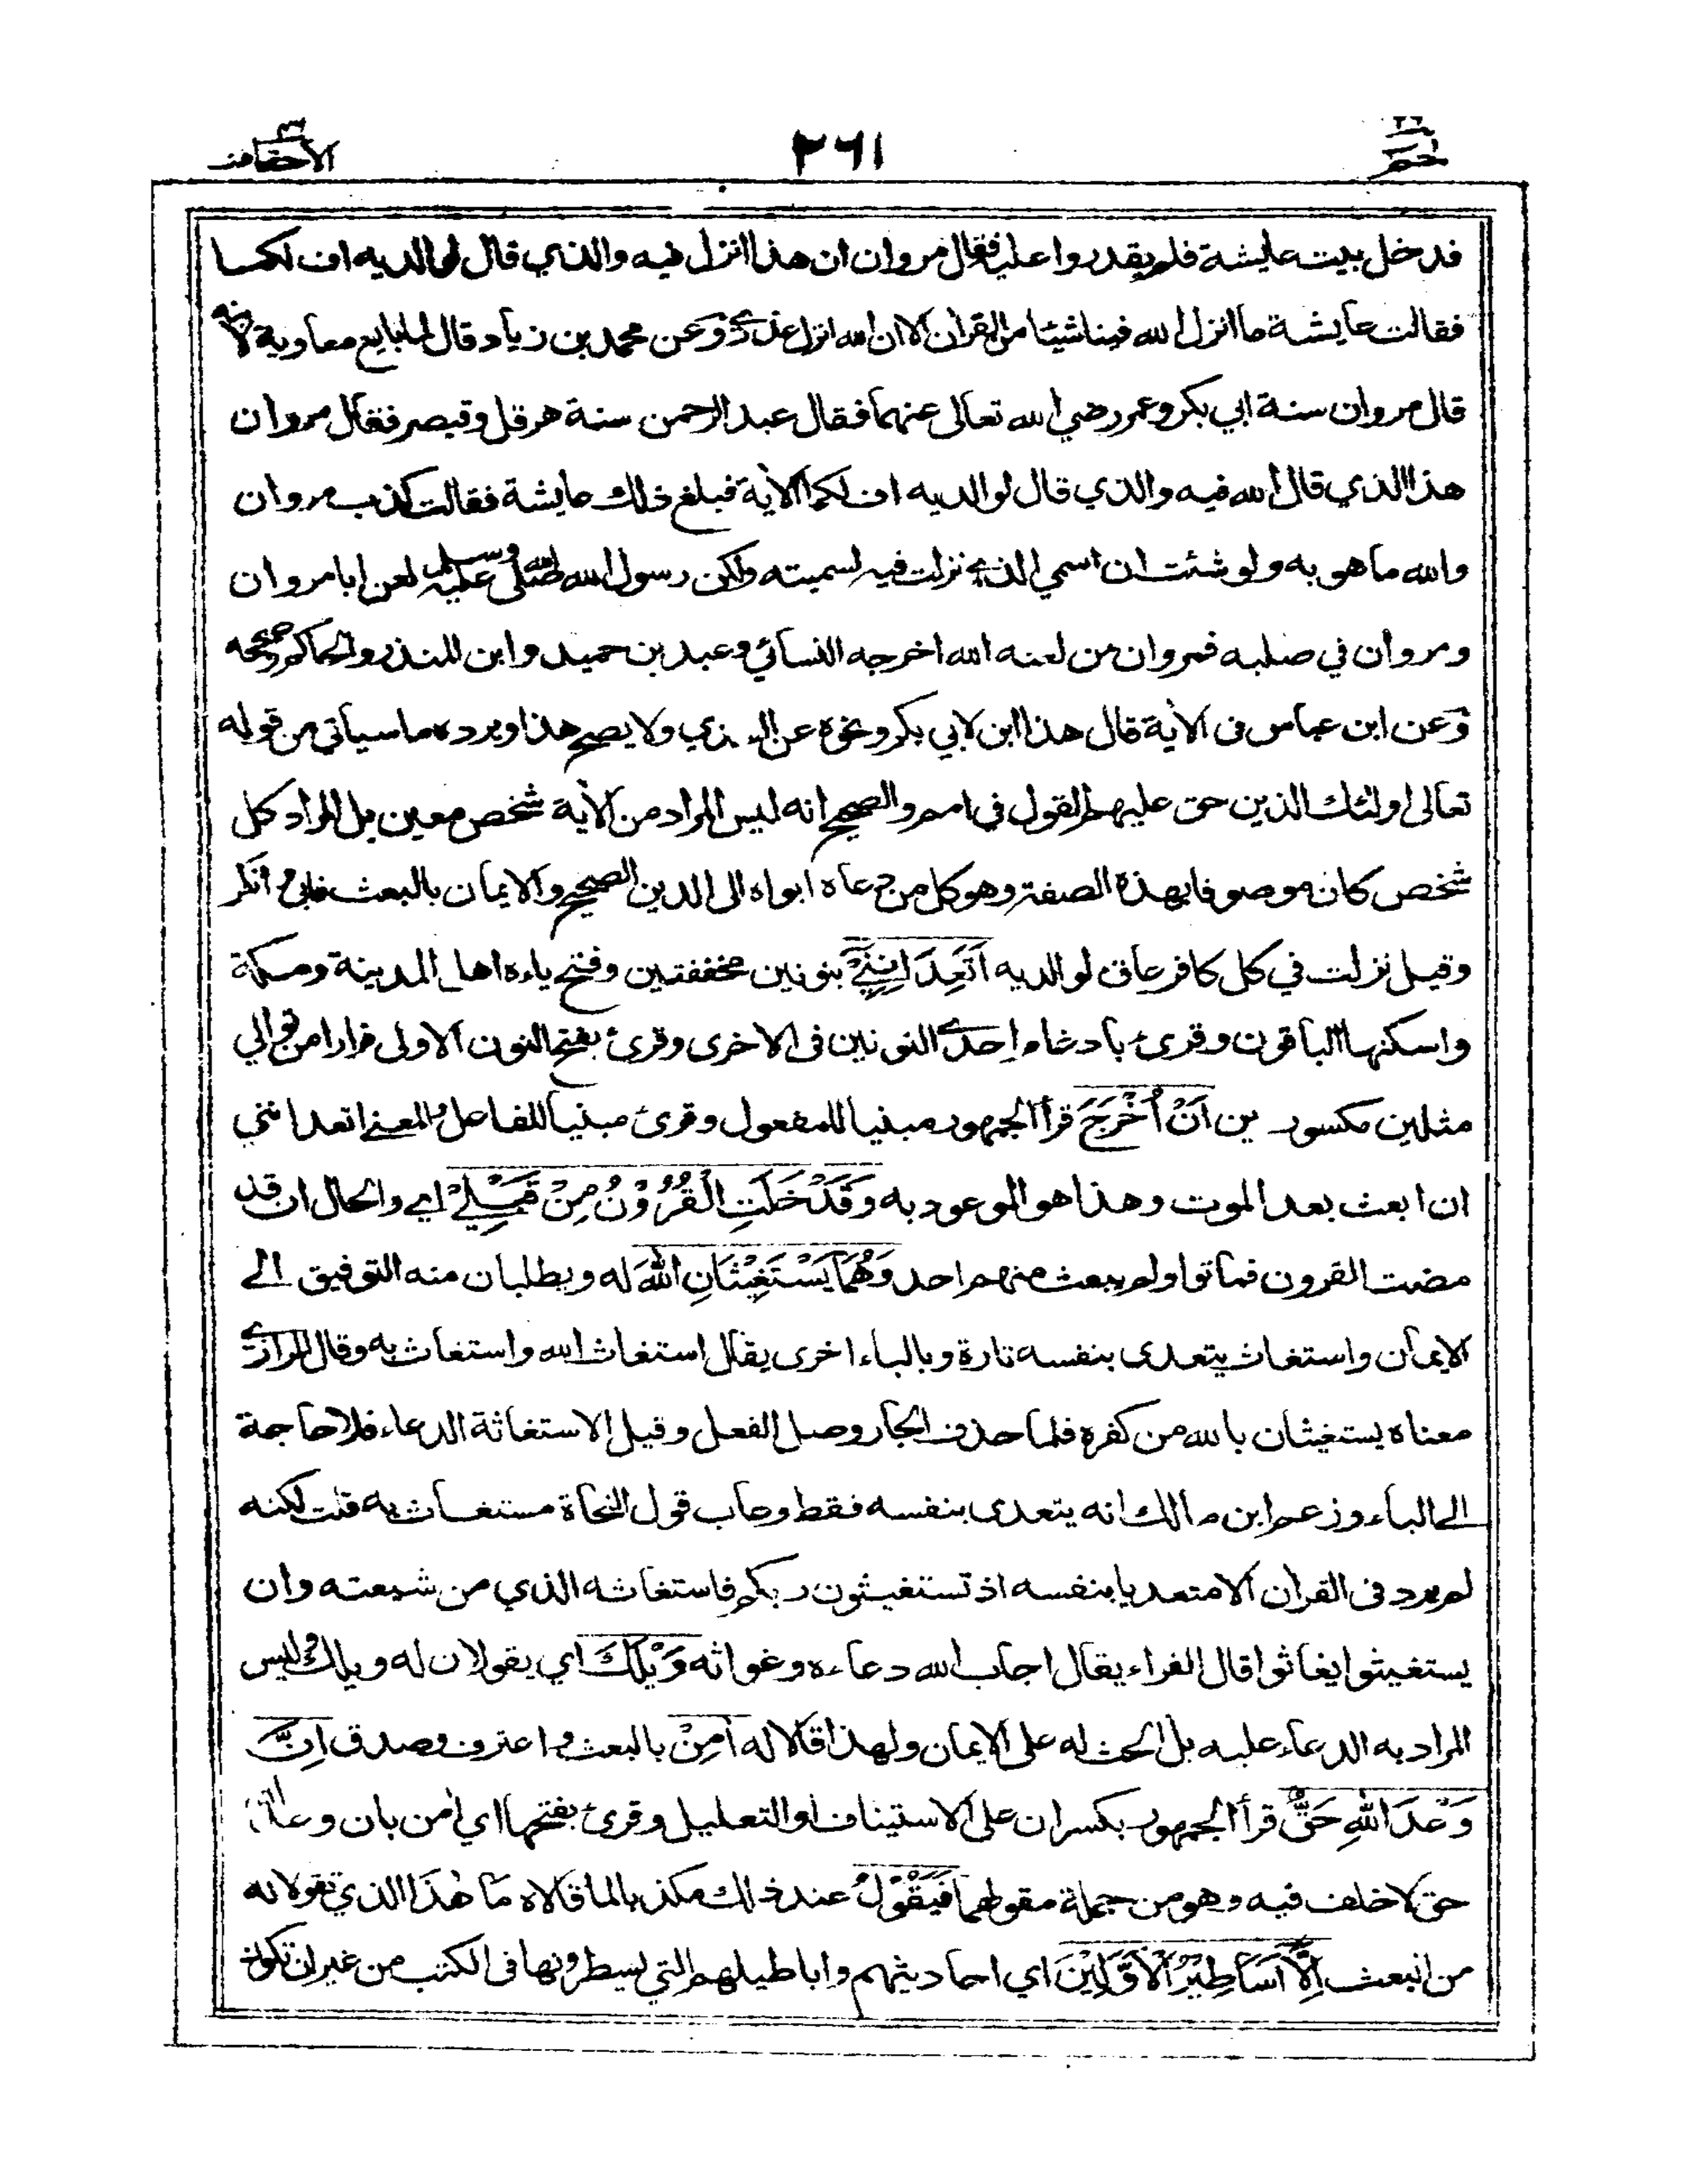 حم ٢٦
٢٦١
الاحقاف ٤٦
فدخل بيت عايشة فلم يقدروا عليه فقال مروان ان هذا انزل فيه والذي قال لوالديه اف لكما
فقالت عايشة ما انزل الله فينا شيئا من القران الا ان الله انزل عذري وعن محمد بن زياد قال لما بايع معاوية لابنه
قال مروان سنة ابي بكر وعمر رضي الله تعالى عنهما فقال عبد الرحمن سنة هرقل وقيصر فقال مروان
هذا الذي قال الله فيه والذي قال لوالديه اف لكما الأية فبلغ ذلك عايشة فقالت كذب مروان
والله ما هو به ولو شئت ان اسمي الذي نزلت فيه لسميته ولكن رسول الله صلى الله عليه وسلم لعن ابا مروان
ومروان في صلبه فمروان من لعنه الله اخرجه النسائي وعبد بن حميد وابن المنذر والحاكم وصححه
وعن ابن عباس في الأية قال هذا ابن لابي بكر ونحوه عن السدي ولا يصح هذا ويرده ما سيأتي من قوله
تعالى اولئك الذين حق عليهم القول في امم والصحيح انه ليس المراد من الأية شخص معين بل المراد كل
شخص كان موصوفا بهذه الصفة وهو كل من دعاه ابواه الى الدين الصحيح والايمان بالبعث فابى وانكر
وقيل نزلت في كل كافر عاق لوالديه اَتَعِدَانِنِيْ بنونين مخففتين وفتح ياءه اهل المدينة ومكة
واسكنها الباقون وقرئ بادغام احدى النونين في الاخرى وقرئ بفتح النون الاولى فرارا من توالي
مثلين مكسورين اَنْ اُخْرَجَ قرأ الجمهور مبنيا للمفعول وقرئ مبنيا للفاعل والمعنى اتعدانني
ان ابعث بعد الموت وهذا هو الموعود به وَقَدْ خَلَتِ الْقُرُوْنُ مِنْ قَبْلِيْ اي والحال ان قد
مضت القرون فماتوا ولم يبعث منهم احد وَهُمَا يَسْتَغِيْثَانِ اللهَ له ويطلبان منه التوفيق الى
الايمان واستغاث يتعدى بنفسه تارة وبالباء اخرى يقال استغاث الله واستغاث به وقال الرازي
معناه يستغيثان بالله من كفره فلما حذف الجار وصل الفعل وقيل الاستغاثة الدعاء فلا حاجة
الى الباء وزعم ابن مالك انه يتعدى بنفسه فقط وعاب قول النحاة مستغاث به قلت لكنه
لم يرد في القران الا متعديا بنفسه اذ تستغيثون ربكم فاستغاثه الذي من شيعته وان
يستغيثوا يغاثوا قال الفراء يقال اجاب الله دعاءه وغواثه وَيْلَكَ اي يقولان له ويلك وليس
المراد به الدعاء عليه بل الحث له على الايمان ولهذا قالا له اٰمِنْ بالبعث واعترف وصدق اِنَّ
وَعْدَ اللهِ حَقٌّ قرأ الجمهور بكسر ان على الاستيناف او التعليل وقرئ بفتحها اي أمن بان وعد الله
حق لا خلف فيه وهو من جملة مقولهما فَيَقُوْلُ عند ذلك مكذبا لما قالاه مَا هٰذَا الذي تقولانه
من البعث اِلَّا اَسَاطِيْرُ الْاَوَّلِيْنَ اي احاديثهم واباطيلهم التي يسطرونها في الكتب من غير ان تكون